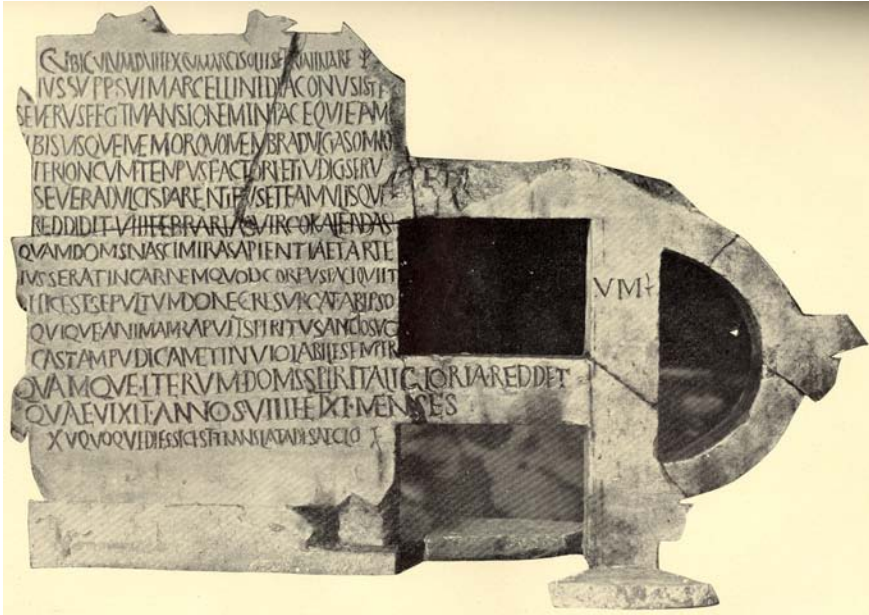 CUBICVLVM DVPLEX CVM ARCISOLIIS ET LVMINARE
IVSSV PP SVI MARCELLINI DIACONVS ISTE
SEVERVS FECIT MANSIONEM IN PACE QVIETAM
IBI SVISQVE MEMOR QVO MEMBRA DVLCIA SOMNO
TEMPVS FACTORI ET IVDICI SERV
SEVERA DVLCIS PARENTIBVS ET FAMVLISQVE
REDDIDIT VIII FEBRARIAS VIRGO KALENDAS
QVAM DOMS NASCI MIRA SAPIENTIA ET ARTE
IVSSERAT IN CARNEM QVOD CORPVS PACI QVIIT VM
HIC EST SEPVLTVM DONEC RESVRGAT AB IPSO
QVIQVE ANIMAM RAPVIT SPIRITV SANCTO SVO
CASTAM PVDICAM ET INVIOLABILE SEMPER
QVAMQVE ITERVM DOMS SPIRITALI GLORIA REDDET
QVAE VIXIT ANNOS VIIII ET XI MENSES
XV QVOQVE DIES SIC EST TRANSLATA DE SAECLO